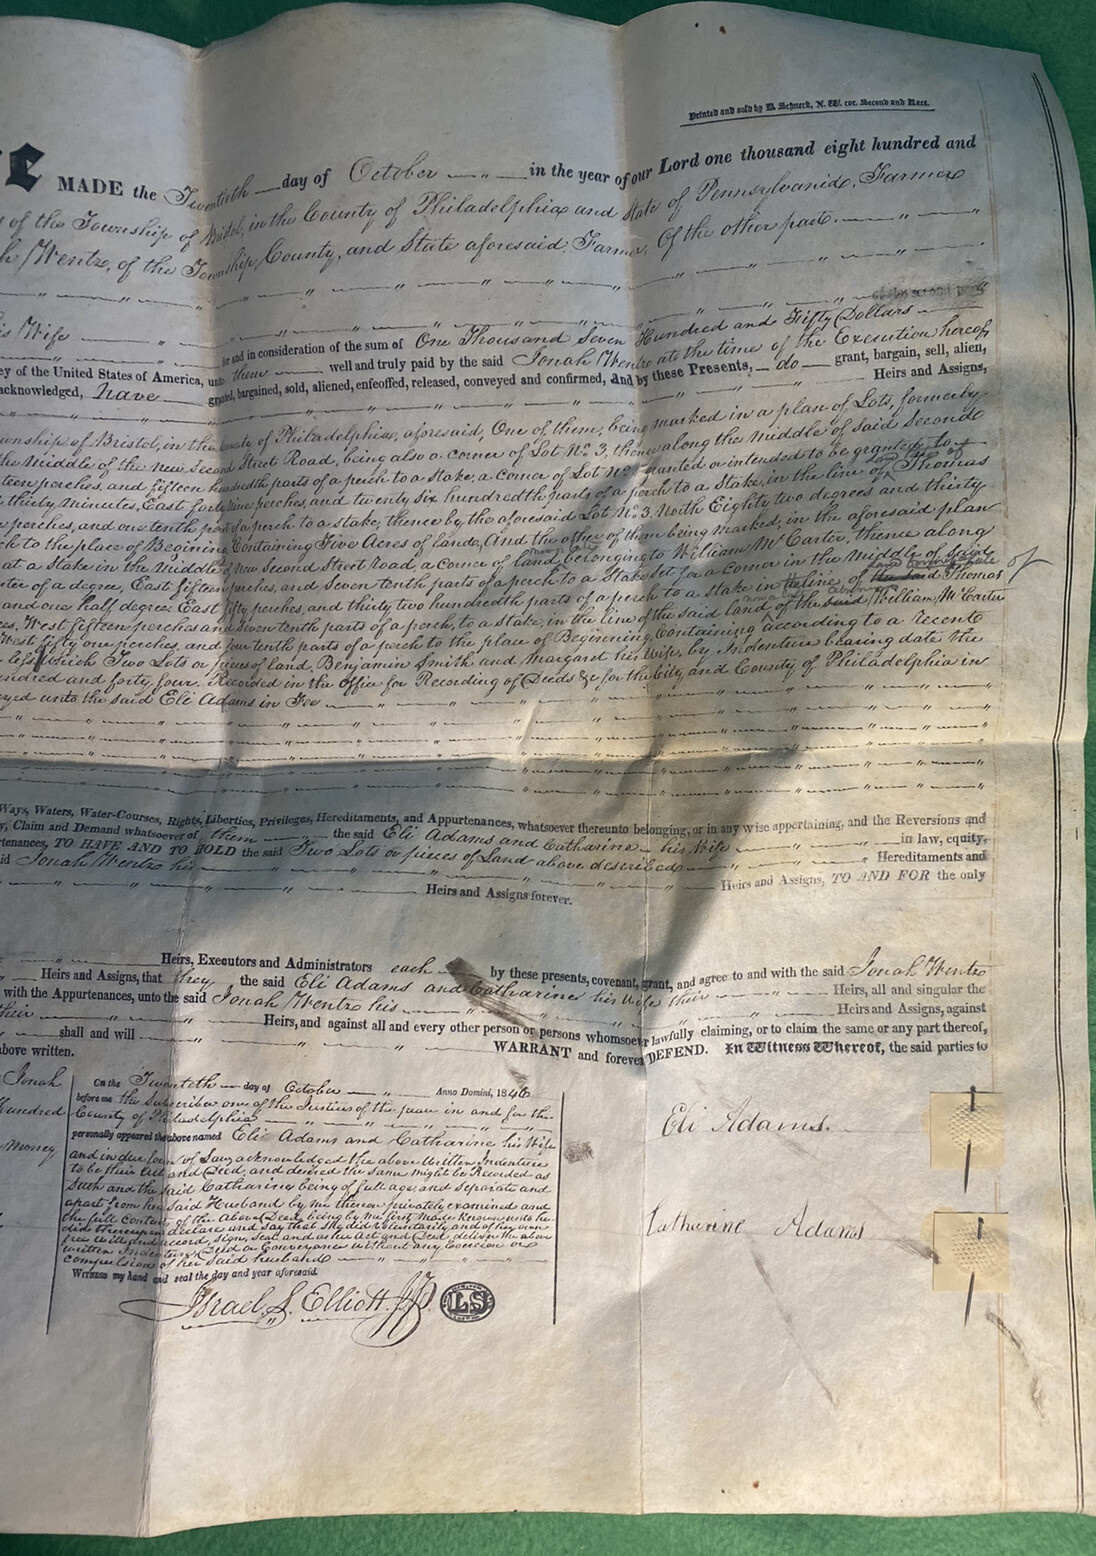 Printed and sold by D. Schneck, N. W. cor. Second and Race.
MADE the Twentieth day of October in the year of our Lord one thousand eight hundred and
of the Township of Bristol, in the County of Philadelphia and State of Pennsylvania, Farmer
h Wentz, of the Township, County, and State aforesaid, Farmer, Of the other part.
is Wife
for and in consideration of the sum of One Thousand Seven Hundred and Fifty Dollars
ey of the United States of America, unto them well and truly paid by the said Jonah Wentz at the time of the Execution hereof,
acknowledged, have granted, bargained, sold, aliened, enfeoffed, released, conveyed and confirmed, and by these Presents, do grant, bargain, sell, alien,
Heirs and Assigns,
wnship of Bristol, in the County of Philadelphia, aforesaid, One of them, being marked in a plan of Lots, formerly
he Middle of the new Second Street Road, being also a corner of Lot No. 3, thence along the middle of said Second
teen perches, and fifteen hundredth parts of a perch to a Stake, a corner of Lot No. granted or intended to be granted to
thirty Minutes, East forty Nine perches, and twenty six hundredth parts of a perch to a Stake, in the line of Thomas
perches, and one tenth part of a perch to a stake, thence by the aforesaid Lot No. 3. North Eighty two degrees and thirty
ch to the place of Begining, Containing Five Acres of land, And the other of them being marked, in the aforesaid plan
at a Stake in the Middle of New Second Street Road, a corner of land belonging to William McCarter, thence along
ter of a degree, East fifteen perches, and Seven tenth parts of a perch to a Stake Set for a corner in the Middle of Said
and one half degree East fifty perches, and thirty two hundredth parts of a perch to a stake in the line of the said Thomas of
ees, West fifteen perches and Seven tenth parts of a perch, to a stake, in the line of the said land of the said William McCarter
West fifty one perches, and four tenth parts of a perch to the place of Beginning, Containing according to a recent
less, which Two Lots or pieces of land, Benjamin Smith and Margaret his Wife, by Indenture bearing date the
undred and forty four. Recorded in the Office for Recording of Deeds &c for the City, and County of Philadelphia in
eyed unto the said Eli Adams in Fee
Ways, Waters, Water-Courses, Rights, Liberties, Privileges, Hereditaments, and Appurtenances, whatsoever thereunto belonging, or in any wise appertaining, and the Reversions and
y, Claim and Demand whatsoever of them the said Eli Adams and Catharine his Wife in law, equity,
rtenances, TO HAVE AND TO HOLD the said Two Lots or pieces of Land above described Hereditaments and
id Jonah Wentz his Heirs and Assigns, TO AND FOR the only
Heirs and Assigns forever.
Heirs, Executors and Administrators each by these presents, covenant, grant, and agree to and with the said Jonah Wentz
Heirs and Assigns, that they the said Eli Adams and Catharine his Wife their Heirs, all and singular the
with the Appurtenances, unto the said Jonah Wentz his Heirs and Assigns, against
their Heirs, and against all and every other person or persons whomsoever lawfully claiming, or to claim the same or any part thereof,
shall and will WARRANT and forever DEFEND. In Witness Whereof, the said parties to
above written.
Jonah
Hundred
Money
On the Twentieth day of October Anno Domini, 1846
before me the Subscriber one of the Justices of the peace in and for the
County of Philadelphia
personally appeared the above named Eli Adams and Catharine his Wife
and in due form of Law acknowledged the above Written Indenture
to be their Act and Deed, and desired the same might be Recorded as
Such and the said Catharine being of full age, and Separate and
apart from her said Husband by me thereon privately examined and
the full contents of the Above Deed being by me first Made Known unto her
did thereupon declare and Say that She did voluntarily and of her own
free will and accord, sign, seal and as her Act and Deed, deliver the above
written Indenture, Deed or Conveyance Without any Coercion or
compulsion of her Said husband
Witness my hand and seal the day and year aforesaid.
Israel S. Elliott J.P.
LS
Eli Adams.
Catherine Adams